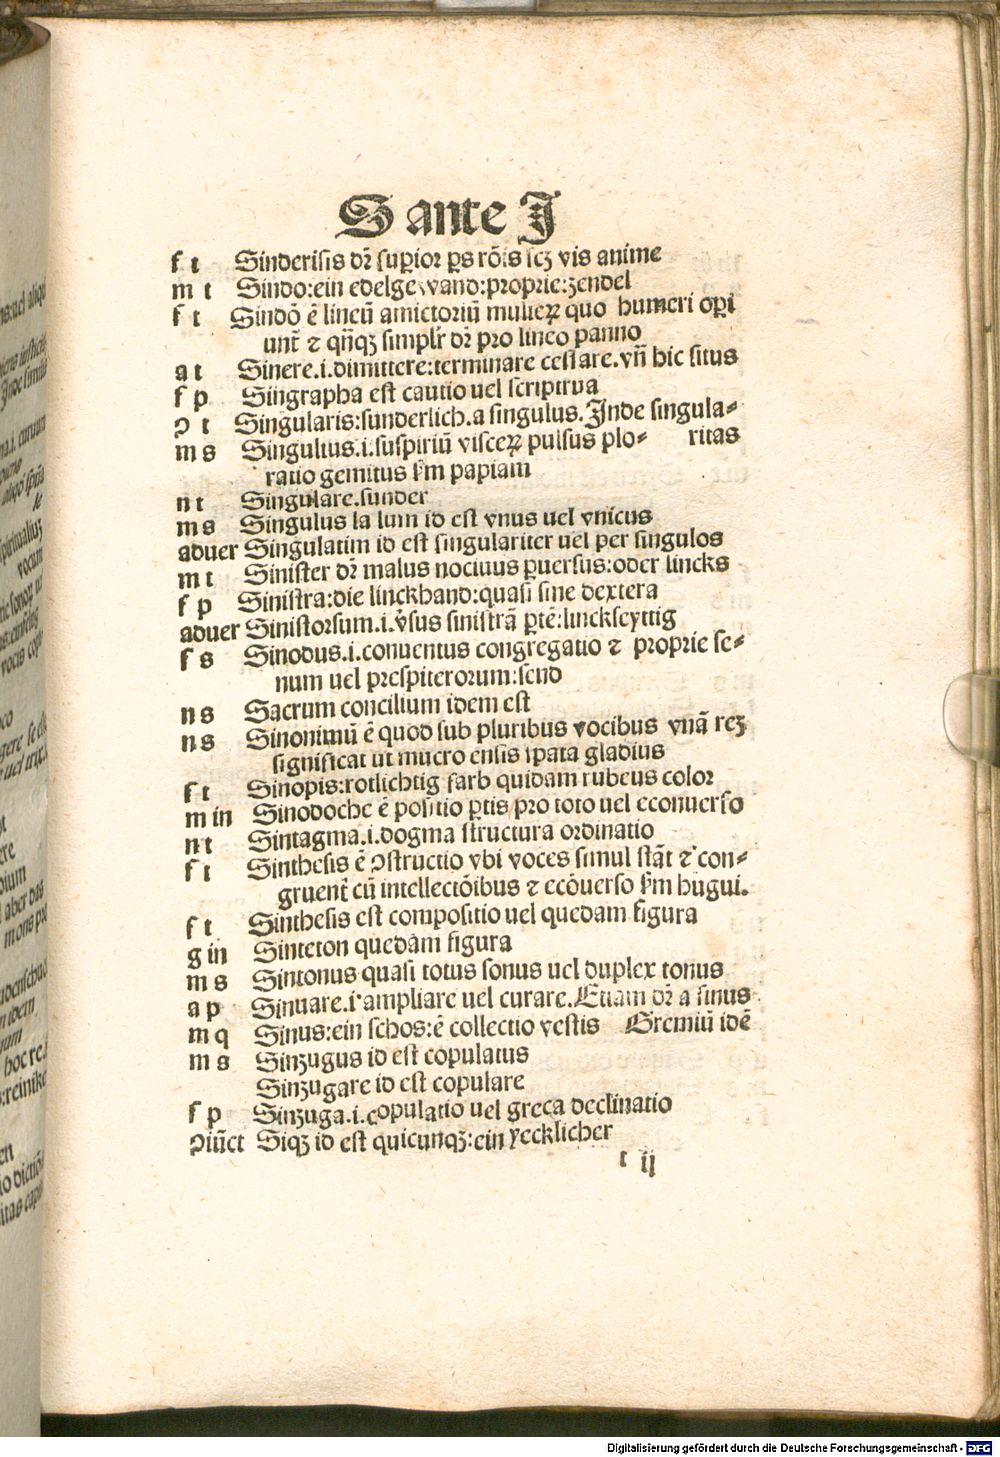 S ante J
f t Sinderisis dr̃ suꝑior ꝑs rõis scꝫ vis anime
m t Sindo:ein edelgewand:proprie:zendel
f t Sindõ ẽ lineũ amictoriũ mulieꝝ quo humeri oꝑi
unt̃ ⁊ qñqꝫ simplr̃ dr̃ pro lineo panno
a t Sinere.i.dimittere:terminare cessare.vñ hic situs
f p Singrapha est cautio uel scriptrua
ꝯ t Singularis:sunderlich.a singulus.Inde singula⸗
m s Singultus.i.suspiriũ visceꝝ pulsus plo⸗ ritas
ratio gemitus ẜm papiam
n t Singulare.sunder
m s Singulus la lum id est vnus uel vnicus
aduer Singulatim id est singulariter uel per singulos
m t Sinister dr̃ malus nociuus ꝑuersus:oder lincks
f p Sinistra:die linckhand:quasi sine dextera
aduer Sinistorsum.i.v̉sus sinistrã ꝑtẽ:linckseyttig
f s Sinodus.i.conuentus congregatio ⁊ proprie se⸗
num uel prespiterorum:send
n s Sacrum concilium idem est
n s Sinonimũ ẽ quod sub pluribus vocibus vnã reꝫ
significat ut mucro ensis spata gladius
f t Sinopis:rotlichtig farb quidam rubeus color
m in Sinodoche ẽ positio ꝑtis pro toto uel econuerso
n t Sintagma.i.dogma structura ordinatio
f t Sinthesis ẽ ꝯstructio vbi voces simul stãt ⁊ con⸗
gruent̃ cũ intellectõibus ⁊ ecõuerso ẜm hugui.
f t Sinthesis est compositio uel quedam figura
g in Sinteton quedam figura
m s Sintonus quasi totus sonus uel duplex tonus
a p Sinuare.i.ampliare uel curare.Etiam dr̃ a sinus
m q Sinus:ein schos:ẽ collectio vestis Gremiũ idẽ
m s Sinzugus id est copulatus
Sinzugare id est copulare
f p Sinzuga.i.copulatio uel greca declinatio
ꝯiũct Siqꝫ id est quicunqꝫ:ein yecklicher
t ij
Digitalisierung gefördert durch die Deutsche Forschungsgemeinschaft - DFG